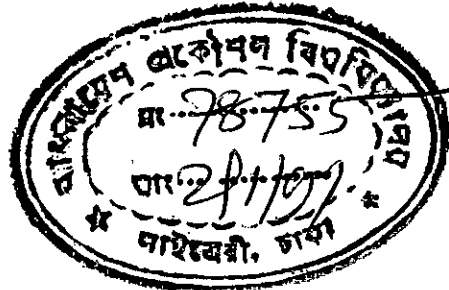 বাংলাদেশ প্রকৌশল বিশ্ববিদ্যালয়
নং 78755
তাং
লাইব্রেরী, ঢাকা